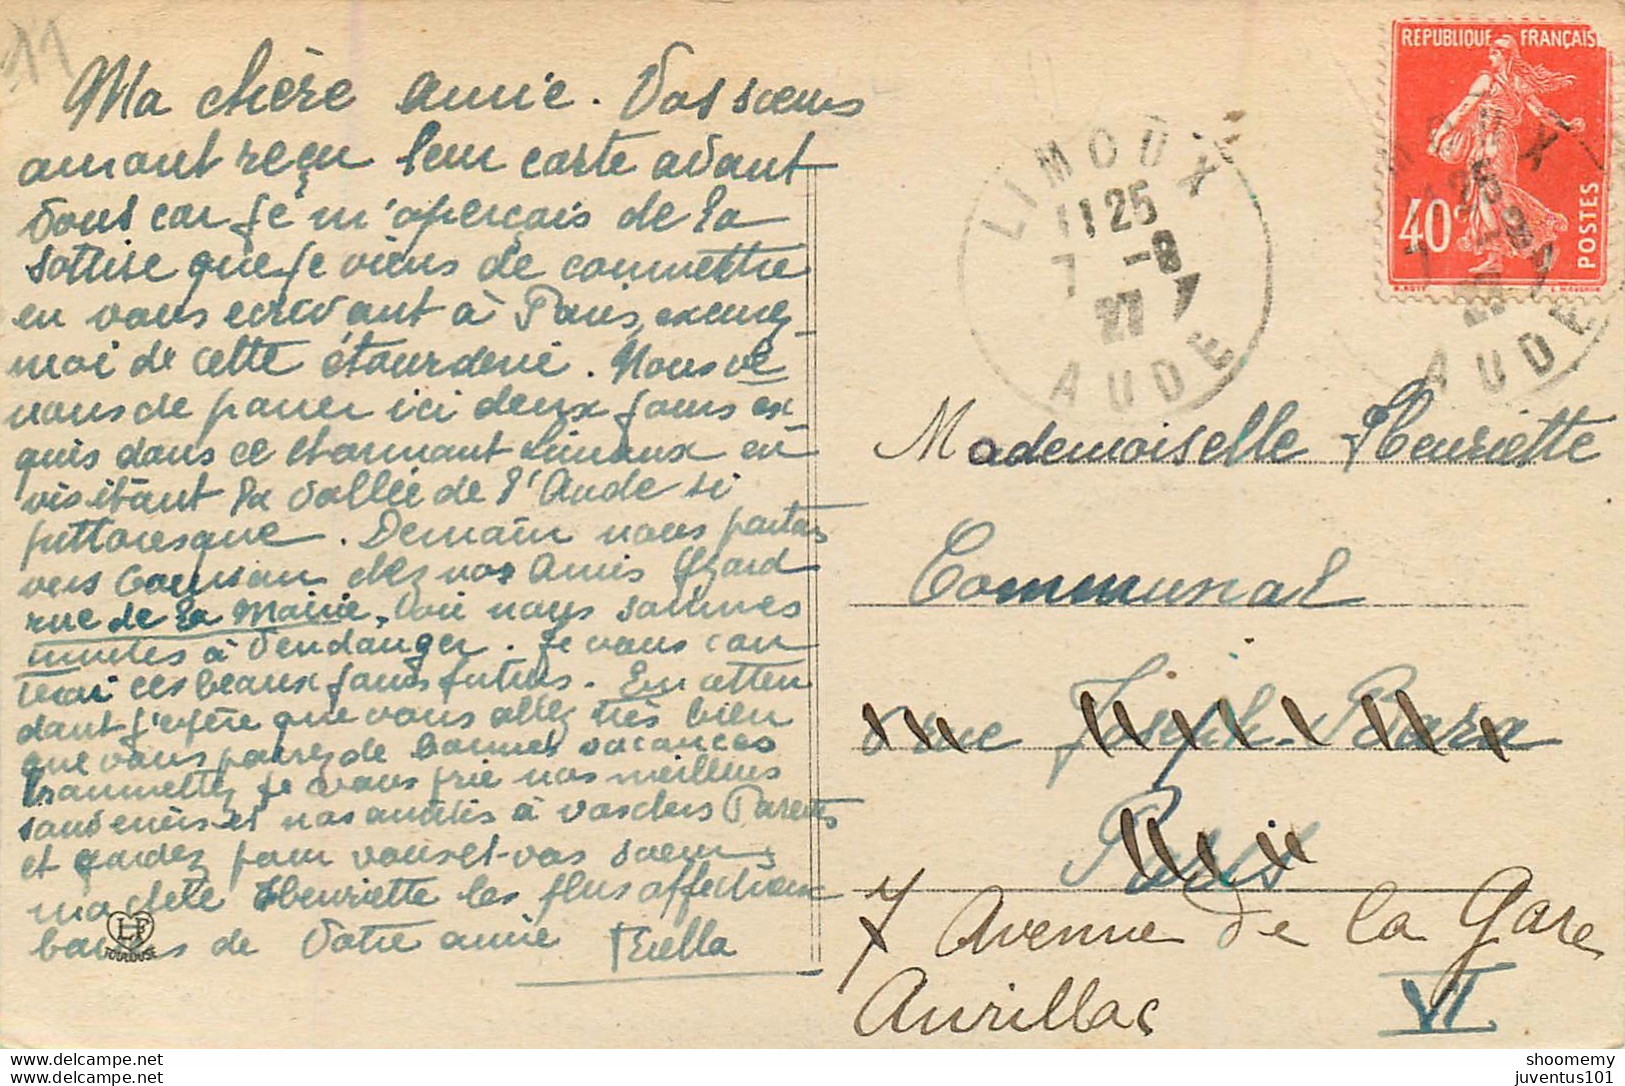 11
Ma chère amie. Vos soeurs
auront reçu leur carte avant
vous car je m'aperçois de la
sottise que je viens de commettre
en vous écrivant à Paris, excusez
moi de cette étourderie. Nous ve
nons de passer ici deux jours ex
quis dans ce charmant Limoux en
visitant la vallée de l'Aude si
pittoresque. Demain nous partons
vers Coursan chez nos amis Azard
rue de la Mairie, où nous sommes
invités à vendanger. Je vous con
terai ces beaux jours futurs. En atten
dant j'espère que vous allez très bien
que vous passez de bonnes vacances
transmettez je vous prie nos meilleurs
souvenirs et nos amitiés à vos chers Parents
et gardez pour vous et vos soeurs,
ma chère Henriette les plus affectueux
baisers de Votre amie
LF
TOULOUSE
REPUBLIQUE FRANÇAISE
40
POSTES
LIMOUX
11 25
7 -9
27
AUDE
LIMOUX
11 25
7 -9
27
AUDE
Mademoiselle Henriette
Communal
rue Joseph-Bara
Paris
7 Avenue De la Gare
Aurillac VI
www.delcampe.net
www.delcampe.net
shoomemy
juventus101